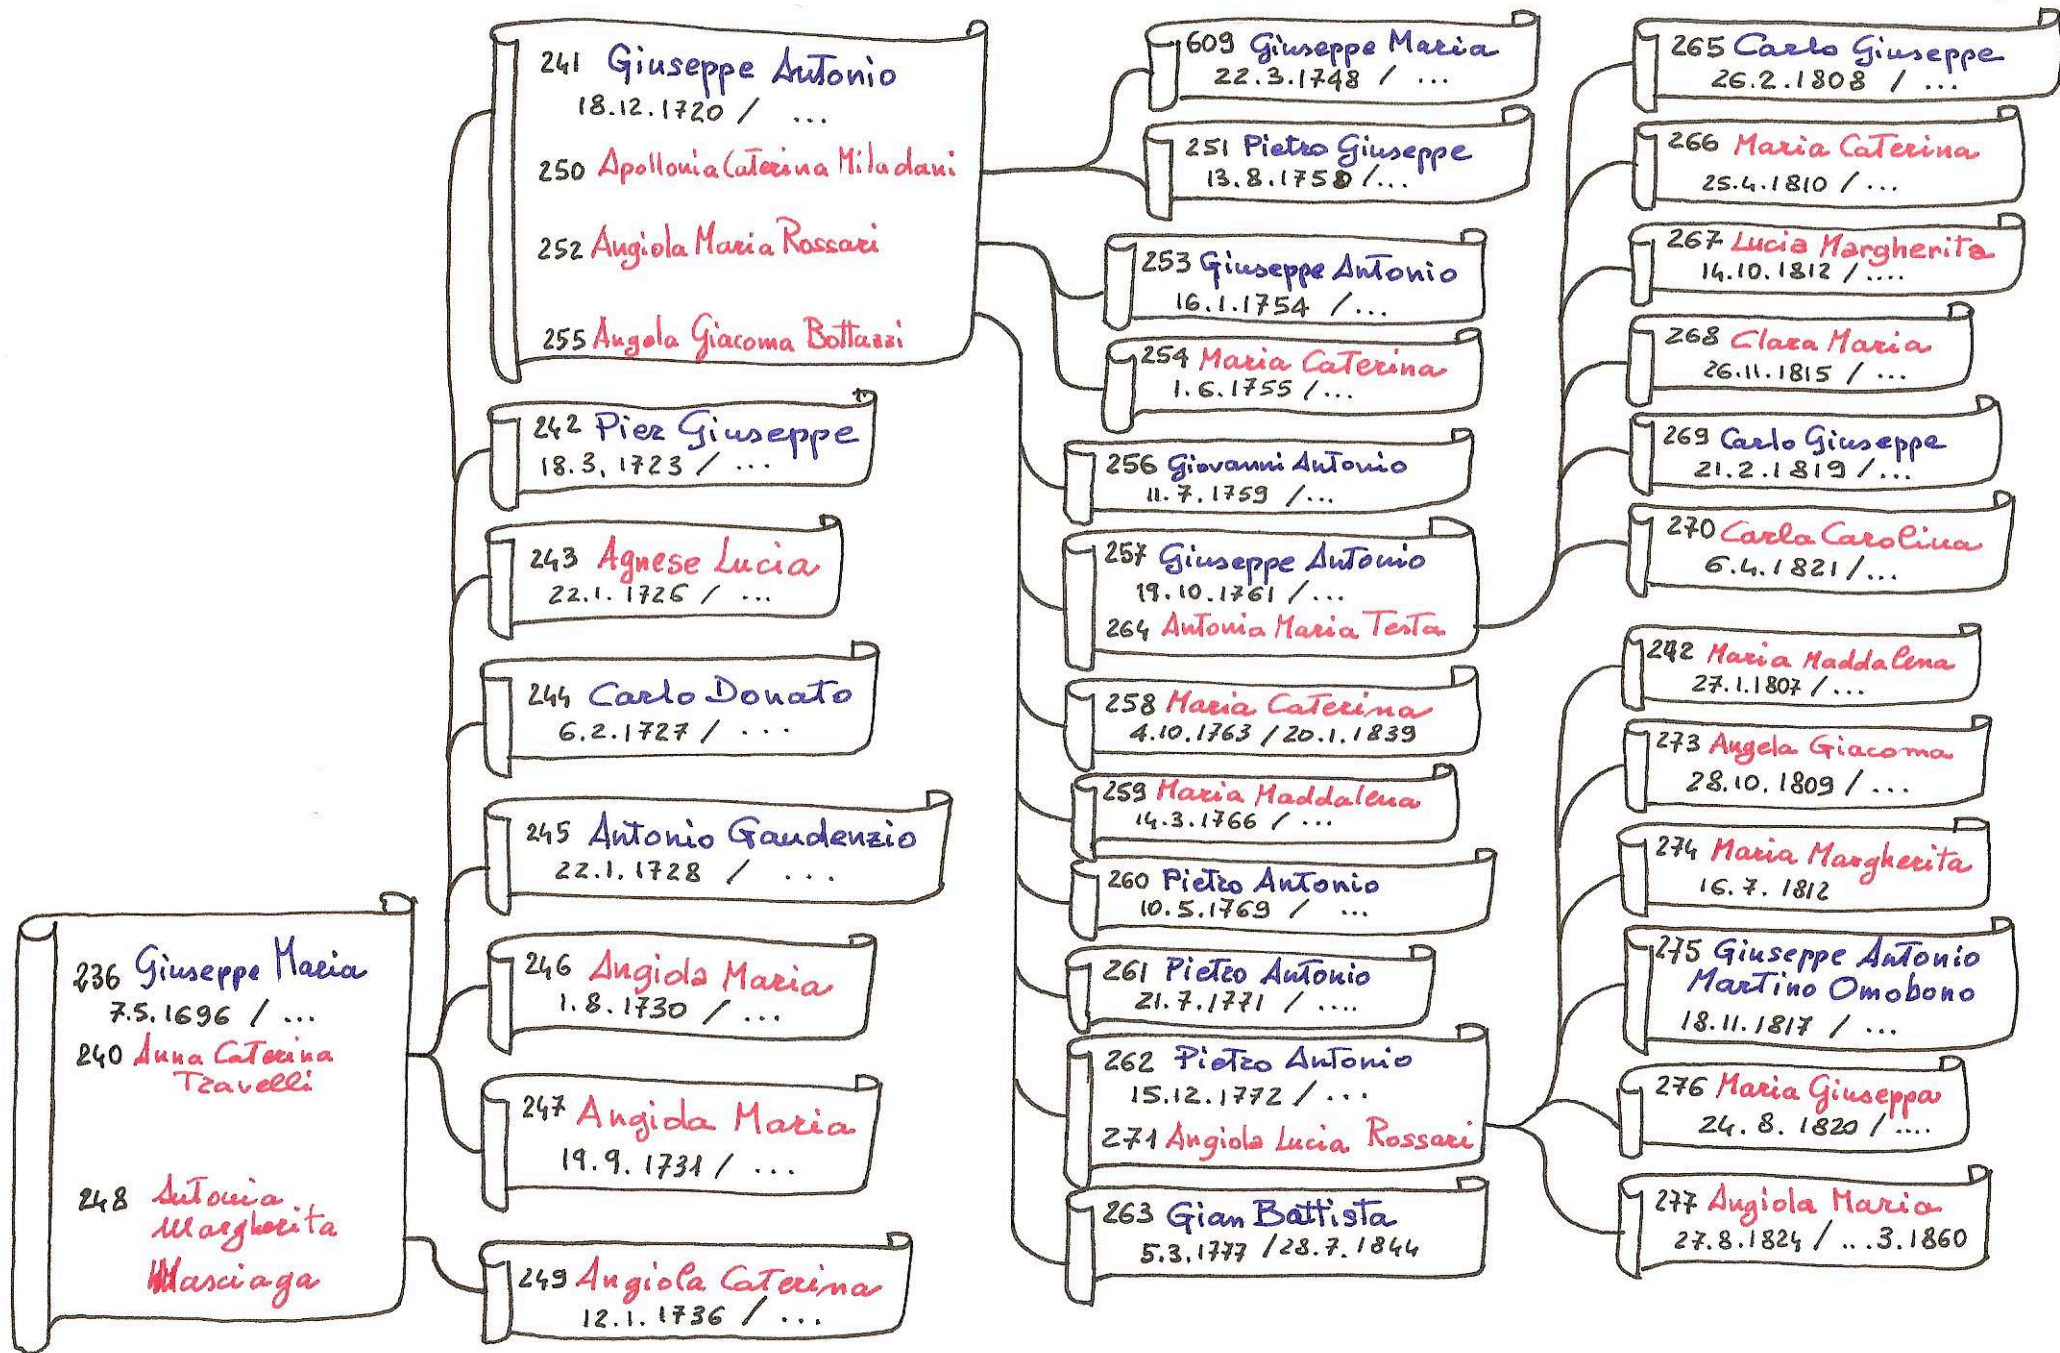 236 Giuseppe Maria
7.5.1696 / ...
240 Anna Caterina
Travelli
248 Antonia
Margherita
Masciaga
241 Giuseppe Antonio
18.12.1720 / ...
250 Apollonia Caterina Miladani
252 Angiola Maria Rossari
255 Angela Giacoma Bottazzi
242 Pier Giuseppe
18.3.1723 / ...
243 Agnese Lucia
22.1.1726 / ...
244 Carlo Donato
6.2.1727 / ...
245 Antonio Gaudenzio
22.1.1728 / ...
246 Angiola Maria
1.8.1730 / ...
247 Angiola Maria
19.9.1731 / ...
249 Angiola Caterina
12.1.1736 / ...
609 Giuseppe Maria
22.3.1748 / ...
251 Pietro Giuseppe
13.8.1750 / ...
253 Giuseppe Antonio
16.1.1754 / ...
254 Maria Caterina
1.6.1755 / ...
256 Giovanni Antonio
11.7.1759 / ...
257 Giuseppe Antonio
19.10.1761 / ...
264 Antonia Maria Testa
258 Maria Caterina
4.10.1763 / 20.1.1839
259 Maria Maddalena
14.3.1766 / ...
260 Pietro Antonio
10.5.1769 / ...
261 Pietro Antonio
21.7.1771 / ....
262 Pietro Antonio
15.12.1772 / ...
271 Angiola Lucia Rossari
263 Gian Battista
5.3.1777 / 28.7.1844
265 Carlo Giuseppe
26.2.1808 / ...
266 Maria Caterina
25.4.1810 / ...
267 Lucia Margherita
14.10.1812 / ....
268 Clara Maria
26.11.1815 / ...
269 Carlo Giuseppe
21.2.1819 / ...
270 Carla Carolina
6.4.1821 / ...
272 Maria Maddalena
27.1.1807 / ...
273 Angela Giacoma
28.10.1809 / ...
274 Maria Margherita
16.7.1812
275 Giuseppe Antonio
Martino Omobono
18.11.1817 / ...
276 Maria Giuseppa
24.8.1820 / ....
277 Angiola Maria
27.8.1824 / ...3.1860